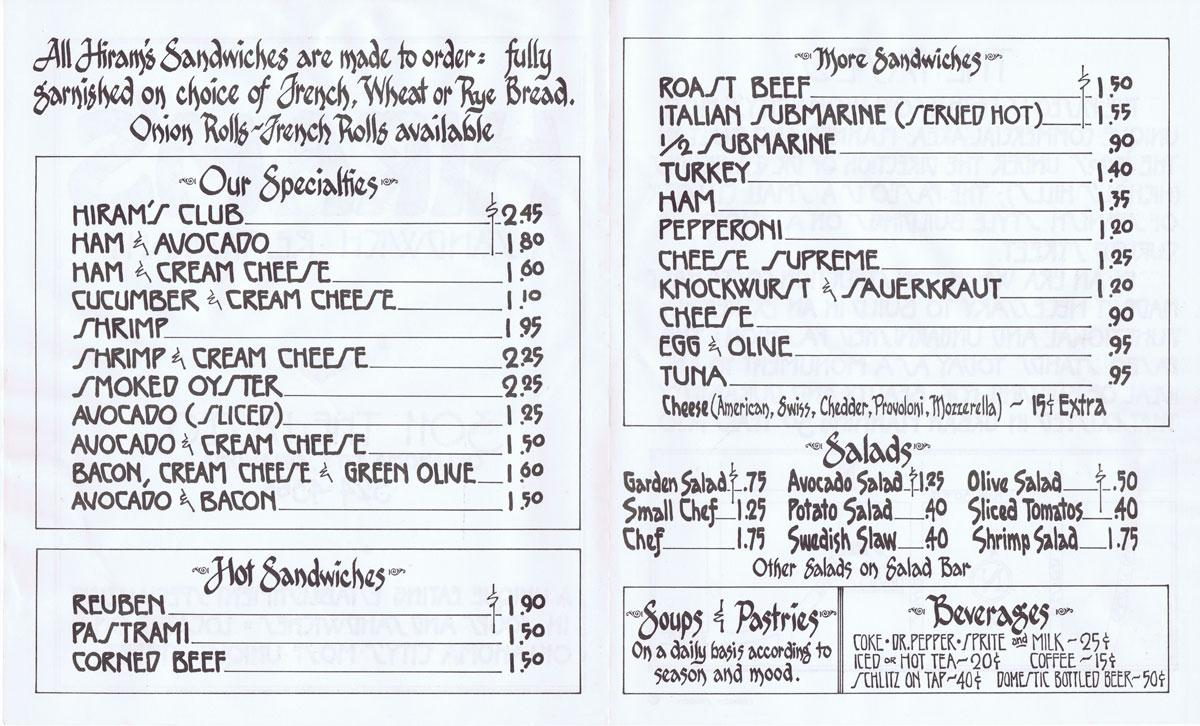 All Hiram's Sandwiches are made to order: fully
garnished on choice of French, Wheat or Rye Bread.
Onion Rolls ~ French Rolls available
Our Specialties
HIRAM'S CLUB $2.45
HAM & AVOCADO 1.80
HAM & CREAM CHEESE 1.60
CUCUMBER & CREAM CHEESE 1.10
SHRIMP 1.95
SHRIMP & CREAM CHEESE 2.25
SMOKED OYSTER 2.25
AVOCADO (SLICED) 1.25
AVOCADO & CREAM CHEESE 1.50
BACON, CREAM CHEESE & GREEN OLIVE 1.60
AVOCADO & BACON 1.50
Hot Sandwiches
REUBEN $1.90
PASTRAMI 1.50
CORNED BEEF 1.50
More Sandwiches
ROAST BEEF $1.50
ITALIAN SUBMARINE (SERVED HOT) 1.55
1/2 SUBMARINE .90
TURKEY 1.40
HAM 1.35
PEPPERONI 1.20
CHEESE SUPREME 1.25
KNOCKWURST & SAUERKRAUT 1.20
CHEESE .90
EGG & OLIVE .95
TUNA .95
Cheese (American, Swiss, Chedder, Provoloni, Mozzerella) ~ 15¢ Extra
Salads
Garden Salad $.75 Avocado Salad $1.25 Olive Salad $.50
Small Chef 1.25 Potato Salad .40 Sliced Tomatos .40
Chef 1.75 Swedish Slaw .40 Shrimp Salad 1.75
Other Salads on Salad Bar
Soups & Pastries
On a daily basis according to
season and mood.
Beverages
COKE • DR. PEPPER • SPRITE and MILK ~ 25¢
ICED OR HOT TEA ~ 20¢ COFFEE ~ 15¢
SCHLITZ ON TAP ~ 40¢ DOMESTIC BOTTLED BEER ~ 50¢